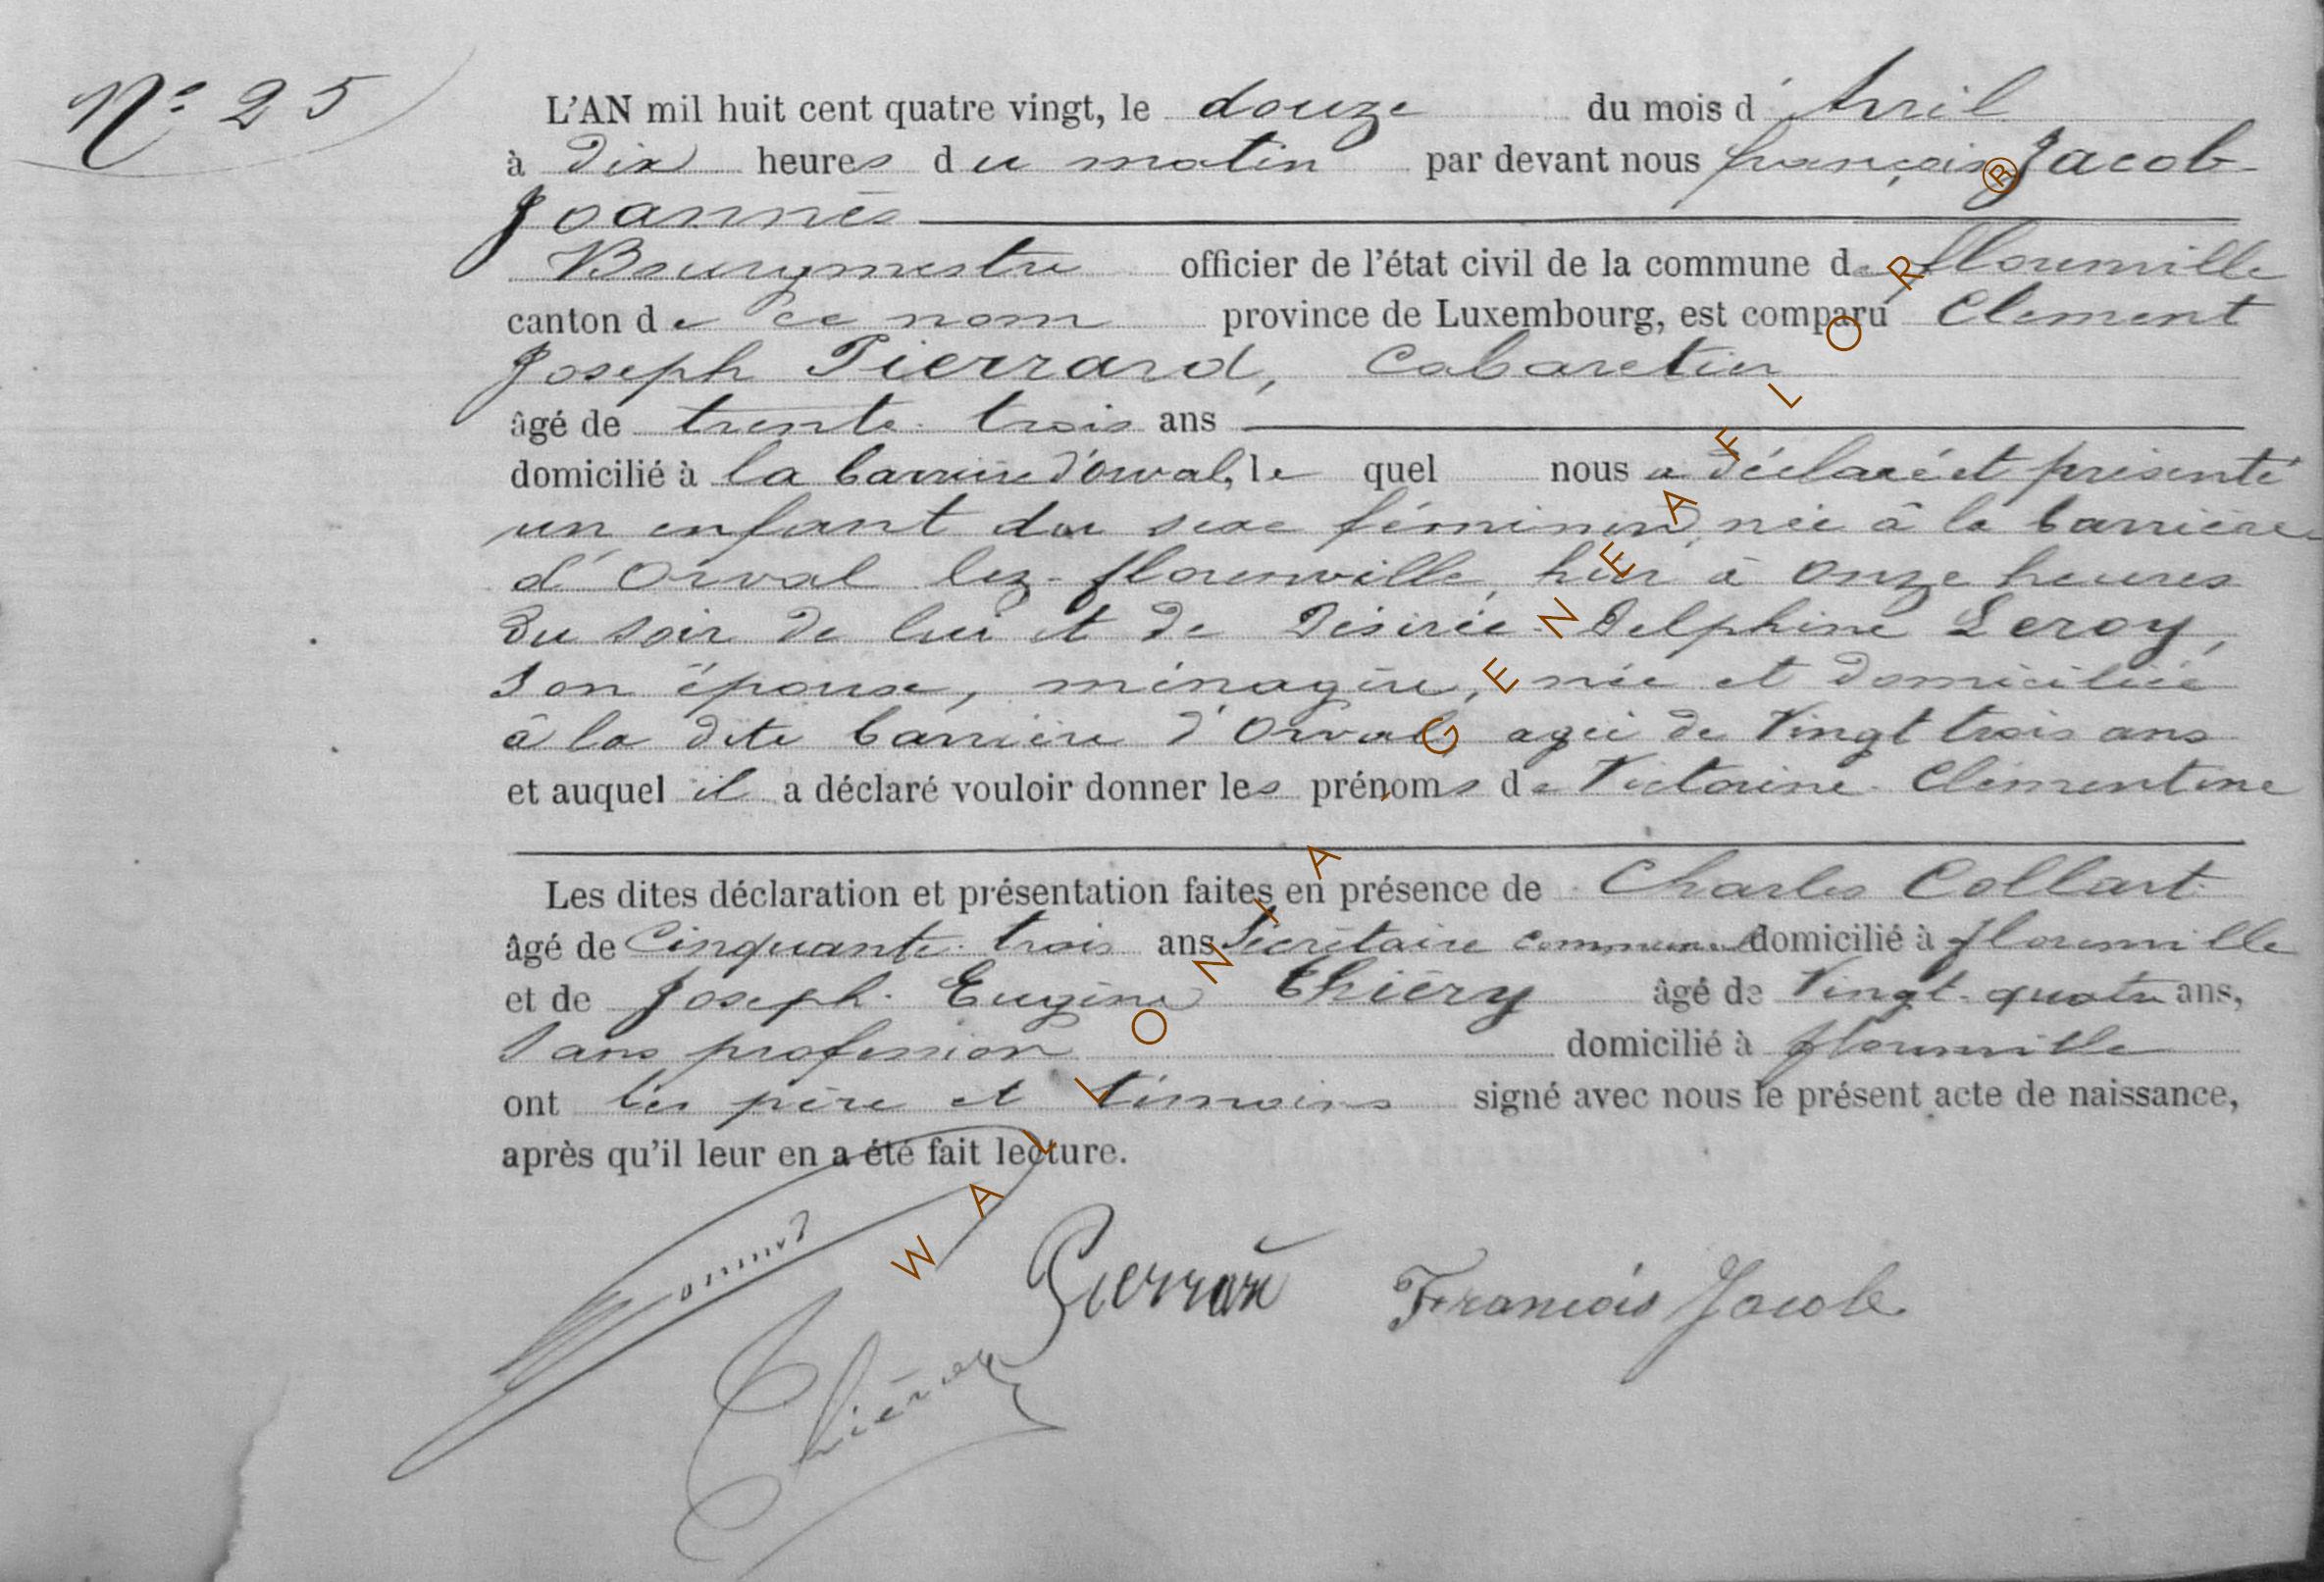 N° 25
L'AN mil huit cent quatre vingt, le douze du mois d'Avril
à dix heures du matin par devant nous françois Jacob
Joannès
Bourgmestre officier de l'état civil de la commune de florenville
canton de ce nom province de Luxembourg, est comparu Clement
Joseph Pierrard, Cabaretier
âgé de trente-trois ans
domicilié à la barrière d'orval, le quel nous a déclaré et présenté
un enfant du sexe féminin, née à la barrière
d'Orval lez-florenville, hier à onze heures
du soir de lui et de Désirée-Delphine Leroy,
son épouse, ménagère, née et domiciliée
à la dite barrière d'Orval agée de Vingt trois ans
et auquel il a déclaré vouloir donner les prénoms de Victorine-Clémentine
Les dites déclaration et présentation faites en présence de Charles Collart
âgé de Cinquante-trois ans Secrétaire communal domicilié à florenville
et de Joseph-Eugène Thiéry âgé de Vingt-quatre ans,
sans profession domicilié à florenville
ont les père et témoins signé avec nous le présent acte de naissance,
après qu'il leur en a été fait lecture.
Pierrard François Jacob
Thiéry
WALLONIA GENEAFLOR ®